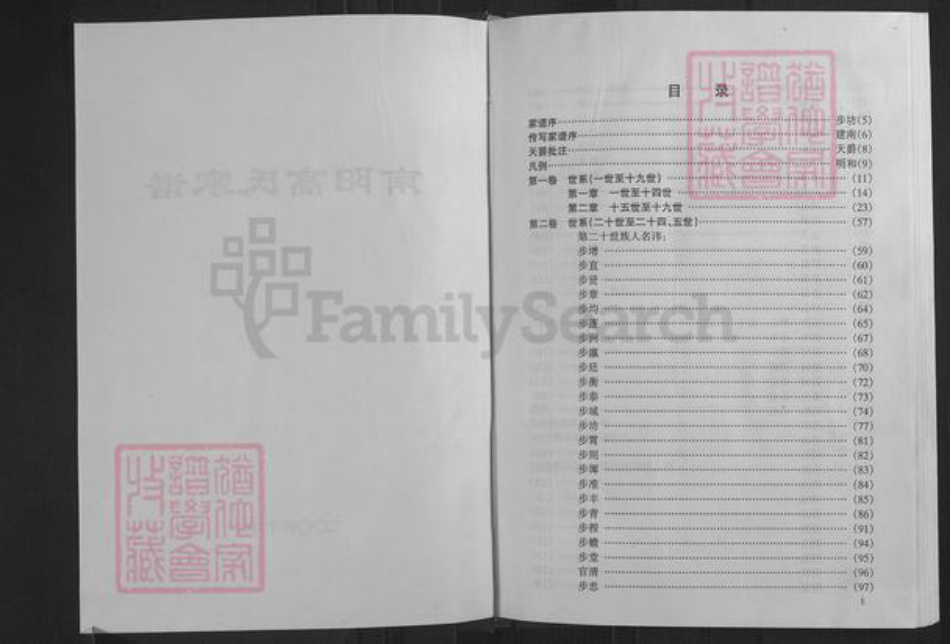 南阳高氏家谱
FamilySearch
目 录
家谱序……步坊(5)
传写家谱序……建南(6)
天爵批注……天爵(8)
凡例……明和(9)
第一卷 世系(一世至十九世)……(11)
第一章 一世至十四世……(14)
第二章 十五世至十九世……(23)
第二卷 世系(二十世至二十四、五世)……(57)
第二十世族人名讳:
步增……(59)
步直……(60)
步贤……(61)
步章……(62)
步均……(64)
步蓬……(65)
步洲……(67)
步瀛……(68)
步廷……(70)
步衡……(72)
步泰……(73)
步域……(74)
步坊……(77)
步霄……(81)
步则……(82)
步墀……(83)
步准……(84)
步丰……(85)
步青……(86)
步程……(91)
步蟾……(94)
步堂……(95)
官清……(96)
步忠……(97)
1
譜學會
收藏